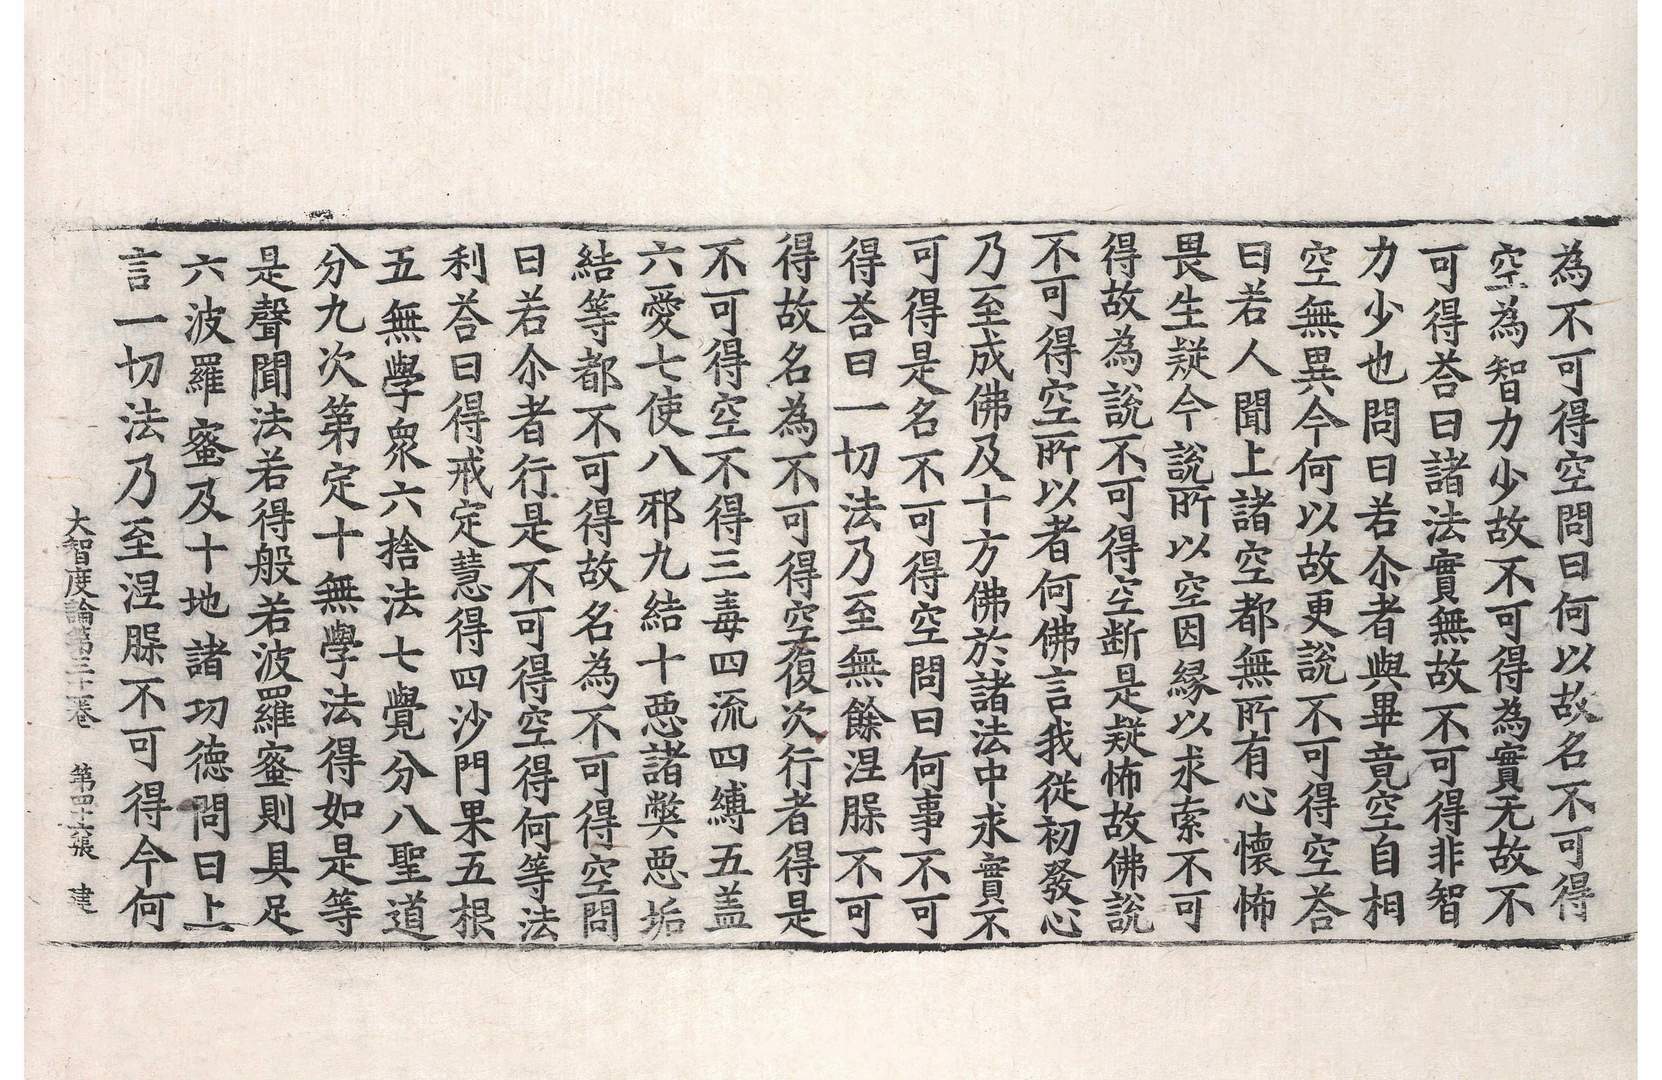 為不可得空問曰何以故名不可得
空為智力少故不可得為實无故不
可得荅曰諸法實無故不可得非智
力少也問曰若尒者與畢竟空自相
空無異今何以故更說不可得空荅
曰若人聞上諸空都無所有心懷怖
畏生疑今說所以空因緣以求索不可
得故為說不可得空断是疑怖故佛說
不可得空所以者何佛言我從初發心
乃至成佛及十方佛於諸法中求實不
可得是名不可得空問曰何事不可
得荅曰一切法乃至無餘涅槃不可
得故名為不可得空復次行者得是
不可得空不得三毒四流四縛五盖
六愛七使八邪九結十惡諸弊惡垢
結等都不可得故名為不可得空問
曰若尒者行是不可得空得何等法
利荅曰得戒定慧得四沙門果五根
五無學衆六捨法七覺分八聖道
分九次第定十無學法得如是等
是聲聞法若得般若波羅蜜則具足
六波羅蜜及十地諸功德問曰上
言一切法乃至涅槃不可得今何
大智度論第三十一卷 第四十六張 建